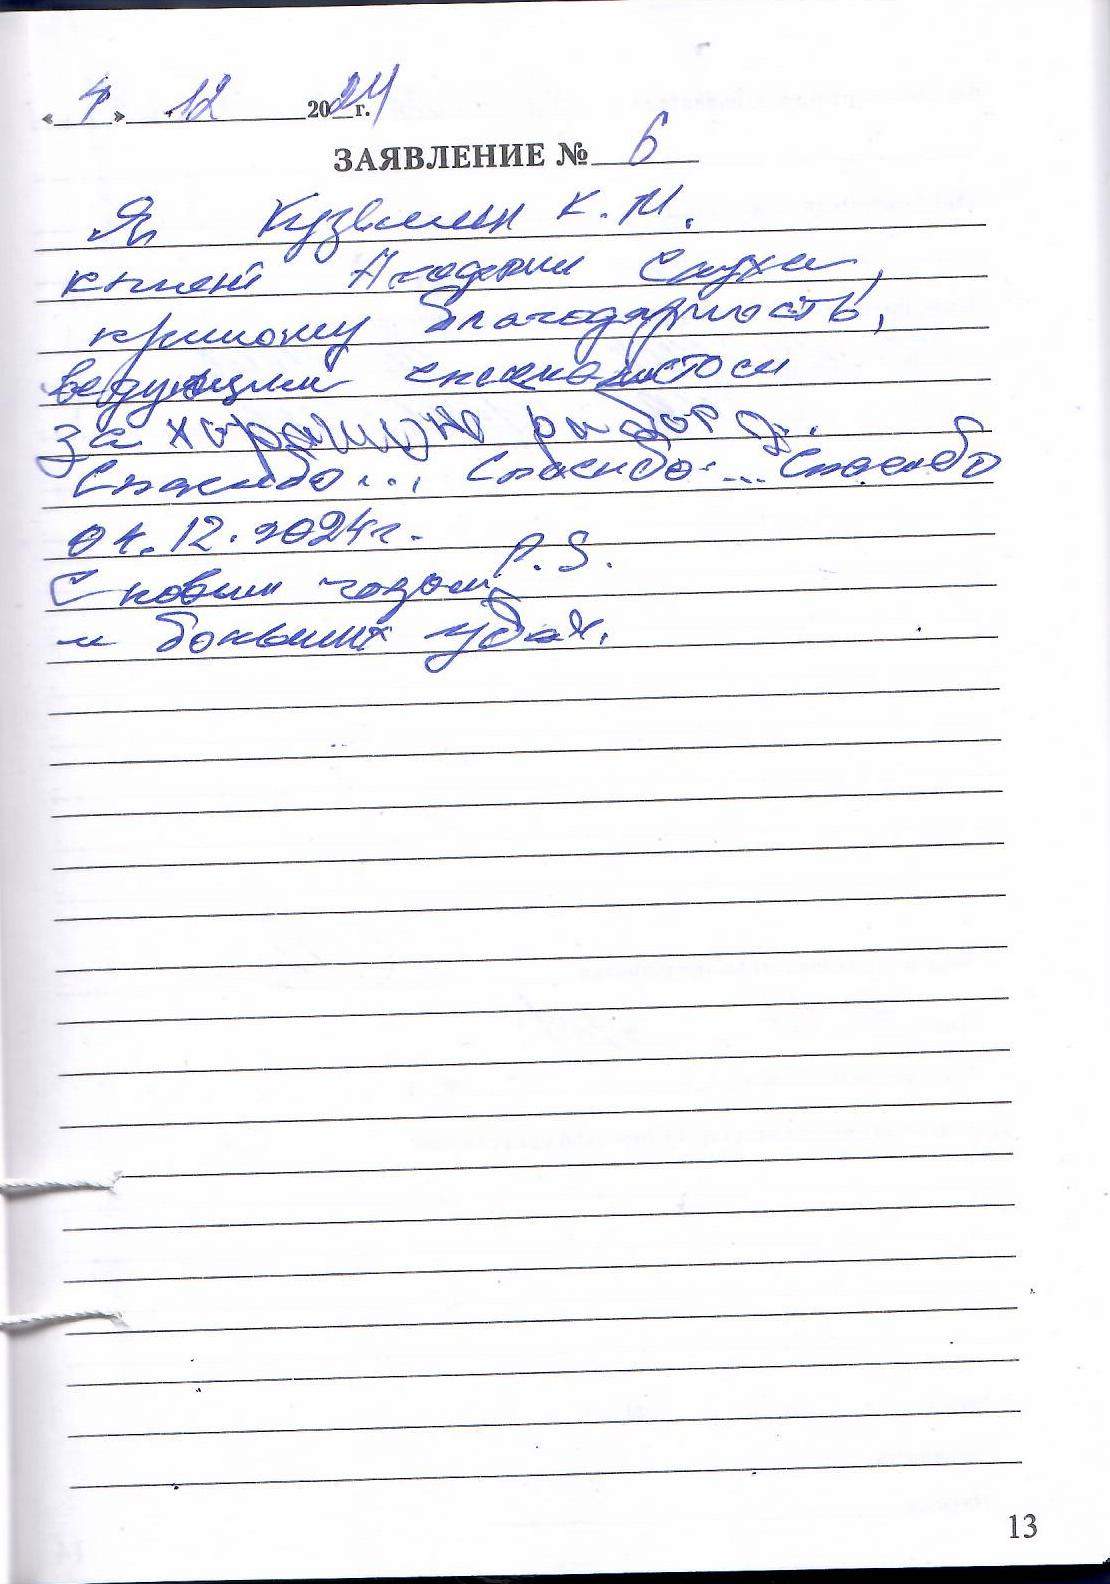 « 4 » 12 2024 г.
ЗАЯВЛЕНИЕ № 6
Я Кузьмин К. М.
клиент Академии Слуха,
приношу благодарность,
ведущим специалистам
за хорошую работу.
Спасибо..., Спасибо... Спасибо
04.12.2024г.
P.S.
С новым годом
и больших удач.
13